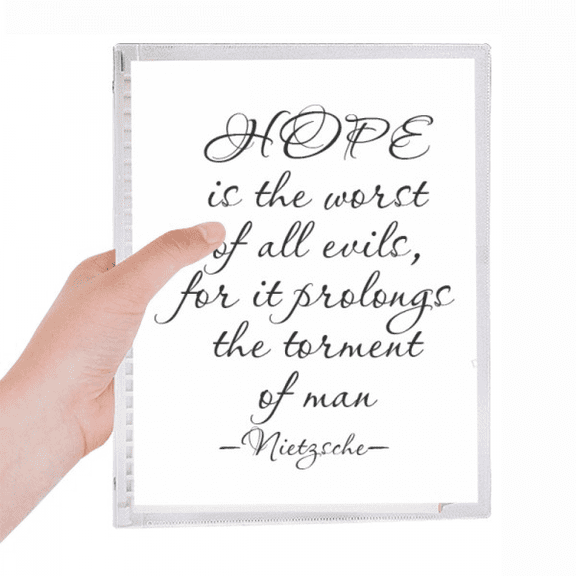 HOPE
is the worst
of all evils,
for it prolongs
the torment
of man
—Nietzsche—